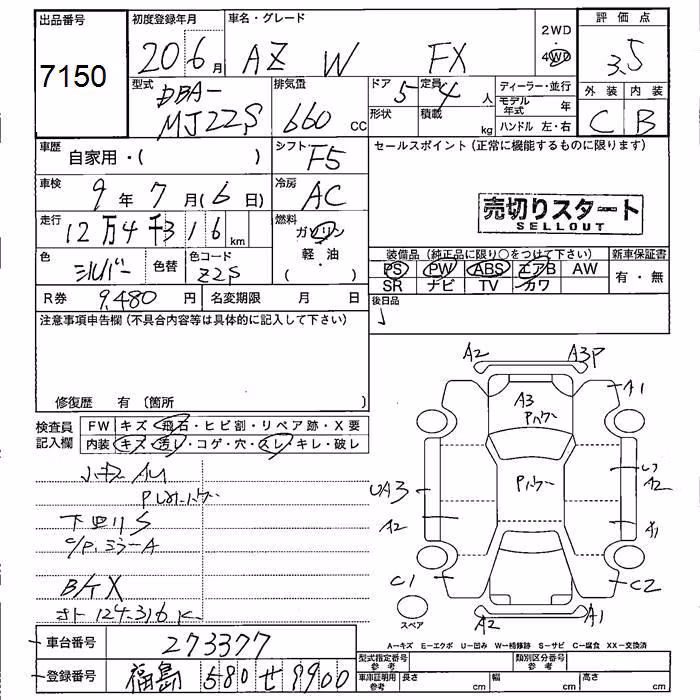 出品番号
7150
初度登録年月
20 6月
車名・グレード
AZ W FX
2WD
4WD
評価点
3.5
外装 内装
C B
型式
DBA-
MJ22S
排気量
660 cc
ドア 5
定員 4 人
形状
積載 kg
ディーラー・並行
モデル年式 年
ハンドル 左・右
車歴
自家用・( )
シフト F5
セールスポイント(正常に機能するものに限ります)
車検
9年7月(6日)
冷房 AC
売切りスタート
SELLOUT
走行
12万4千316km
燃料
ガソリン
軽・油
( )
色
シルバー
色替
色コード
Z2S
装備品(純正品に限り○をつけて下さい)
新車保証書
PS PW ABS エアB AW
SR ナビ TV カワ
有・無
R券 9,480円
名変期限 月 日
後日品
注意事項申告欄(不具合内容等は具体的に記入して下さい)
修復歴 有 〔箇所 〕
検査員記入欄
FW キズ・飛石・ヒビ割・リペア跡・X要
内装 キズ・汚レ・コゲ・穴・スレ・キレ・破レ
下回りS
C/P、ミラーA
B/K X
メーター 124,316K
A2 A3P
A3
A1
Pハゲー
Pハゲー
UA3
A2
A2
A1
C1
C2
A2 A1
スペア
A-キズ E-エクボ U-凹み W-補修跡 S-サビ C-腐食 XX-交換済
車台番号 273377
登録番号 福島 580 せ 9900
型式指定番号 参考
類別区分番号 参考
車庫証明用 参考
長さ cm 幅 cm 高さ cm